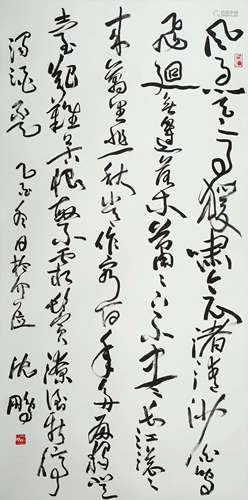 風急天高猨嘯哀渚清沙白鳥
飛迴無邊落木蕭〻下不盡長江滾〻
來萬里悲秋常作客百年多病獨登
臺艱難苦恨繁霜鬢潦倒新停
濁酒杯 冬日於介居 沈鵬